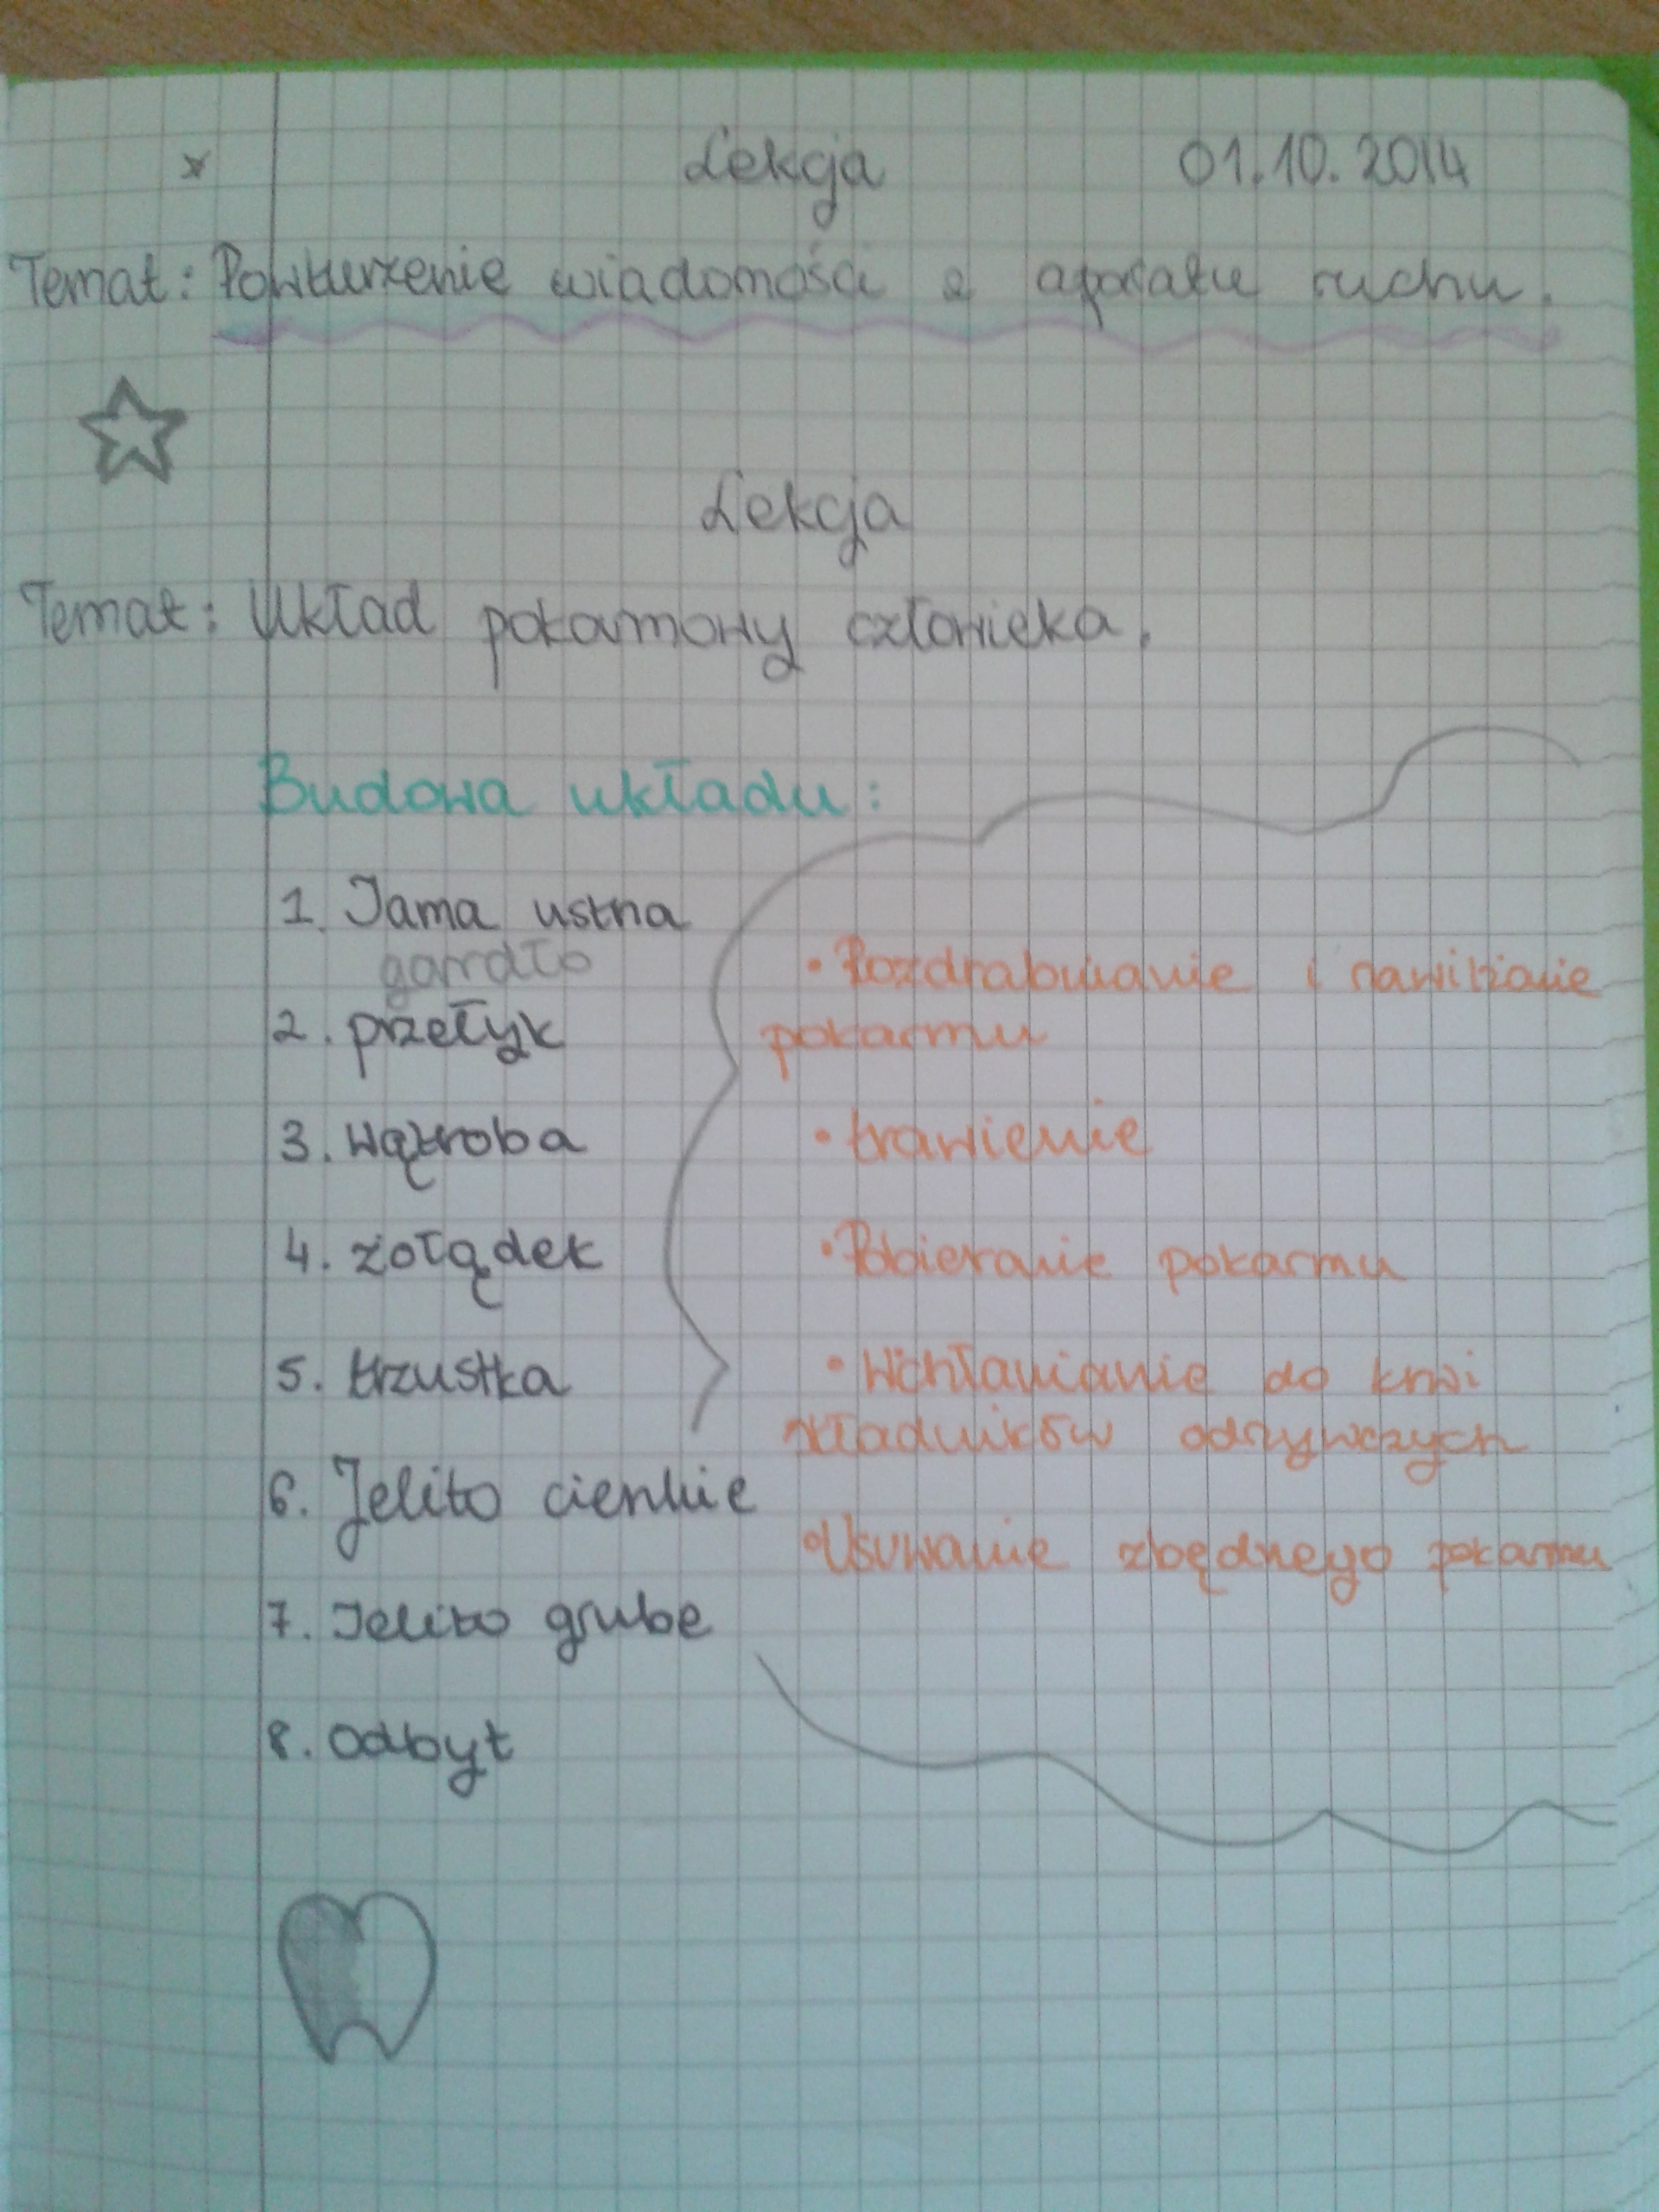 Lekcja 01.10.2014
Temat: Powturzenie wiadomości z aparatu ruchu.
Lekcja
Temat: Układ pokarmowy człowieka.
Budowa układu:
1. Jama ustna
gardło
2. przełyk
3. wątroba
4. żołądek
5. trzustka
6. Jelito cienkie
7. Jelito grube
8. Odbyt
• Rozdrabnianie i nawilżanie
pokarmu
• trawienie
• Pobieranie pokarmu
• Wchłanianie do krwi
składników odżywczych
• Usuwanie zbędnego pokarmu